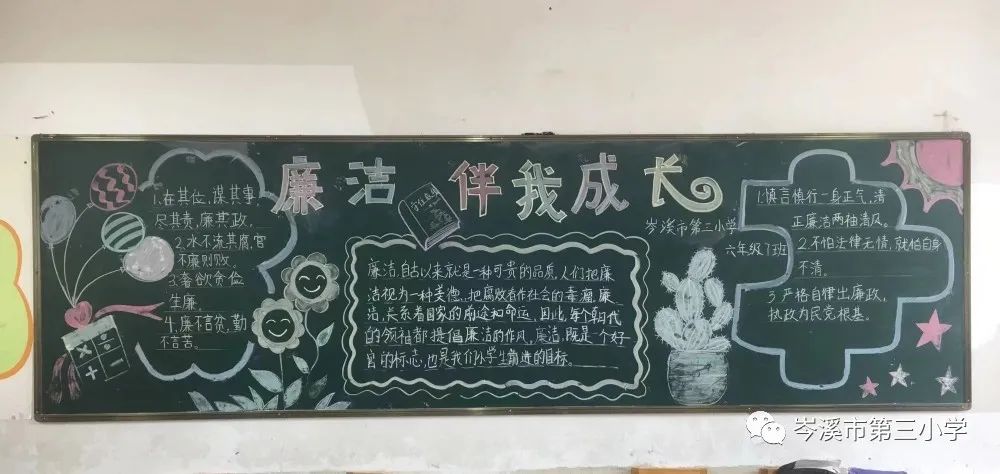 廉洁 伴我成长
岑溪市第三小学
六年级7班
1.在其位,谋其事,
尽其责,廉其政,
2.水不流其腐,官
不廉则败,
3.奢欲贪俭
生廉,
4.廉不言贫,勤
不言苦。
廉洁,自古以来就是一种可贵的品质,人们把廉
洁视为一种美德,把腐败看作社会的毒瘤,廉
洁,关系着国家的前途和命运,因此,每个朝代
的领袖都提倡廉洁的作风,廉洁,既是一个好
官的标志,也是我们小学生前进的目标。
1.慎言慎行一身正气,清
正廉洁两袖清风。
2.不怕法律无情,就怕自身
不清。
3.严格自律出廉政,
执政为民党根基。
岑溪市第三小学